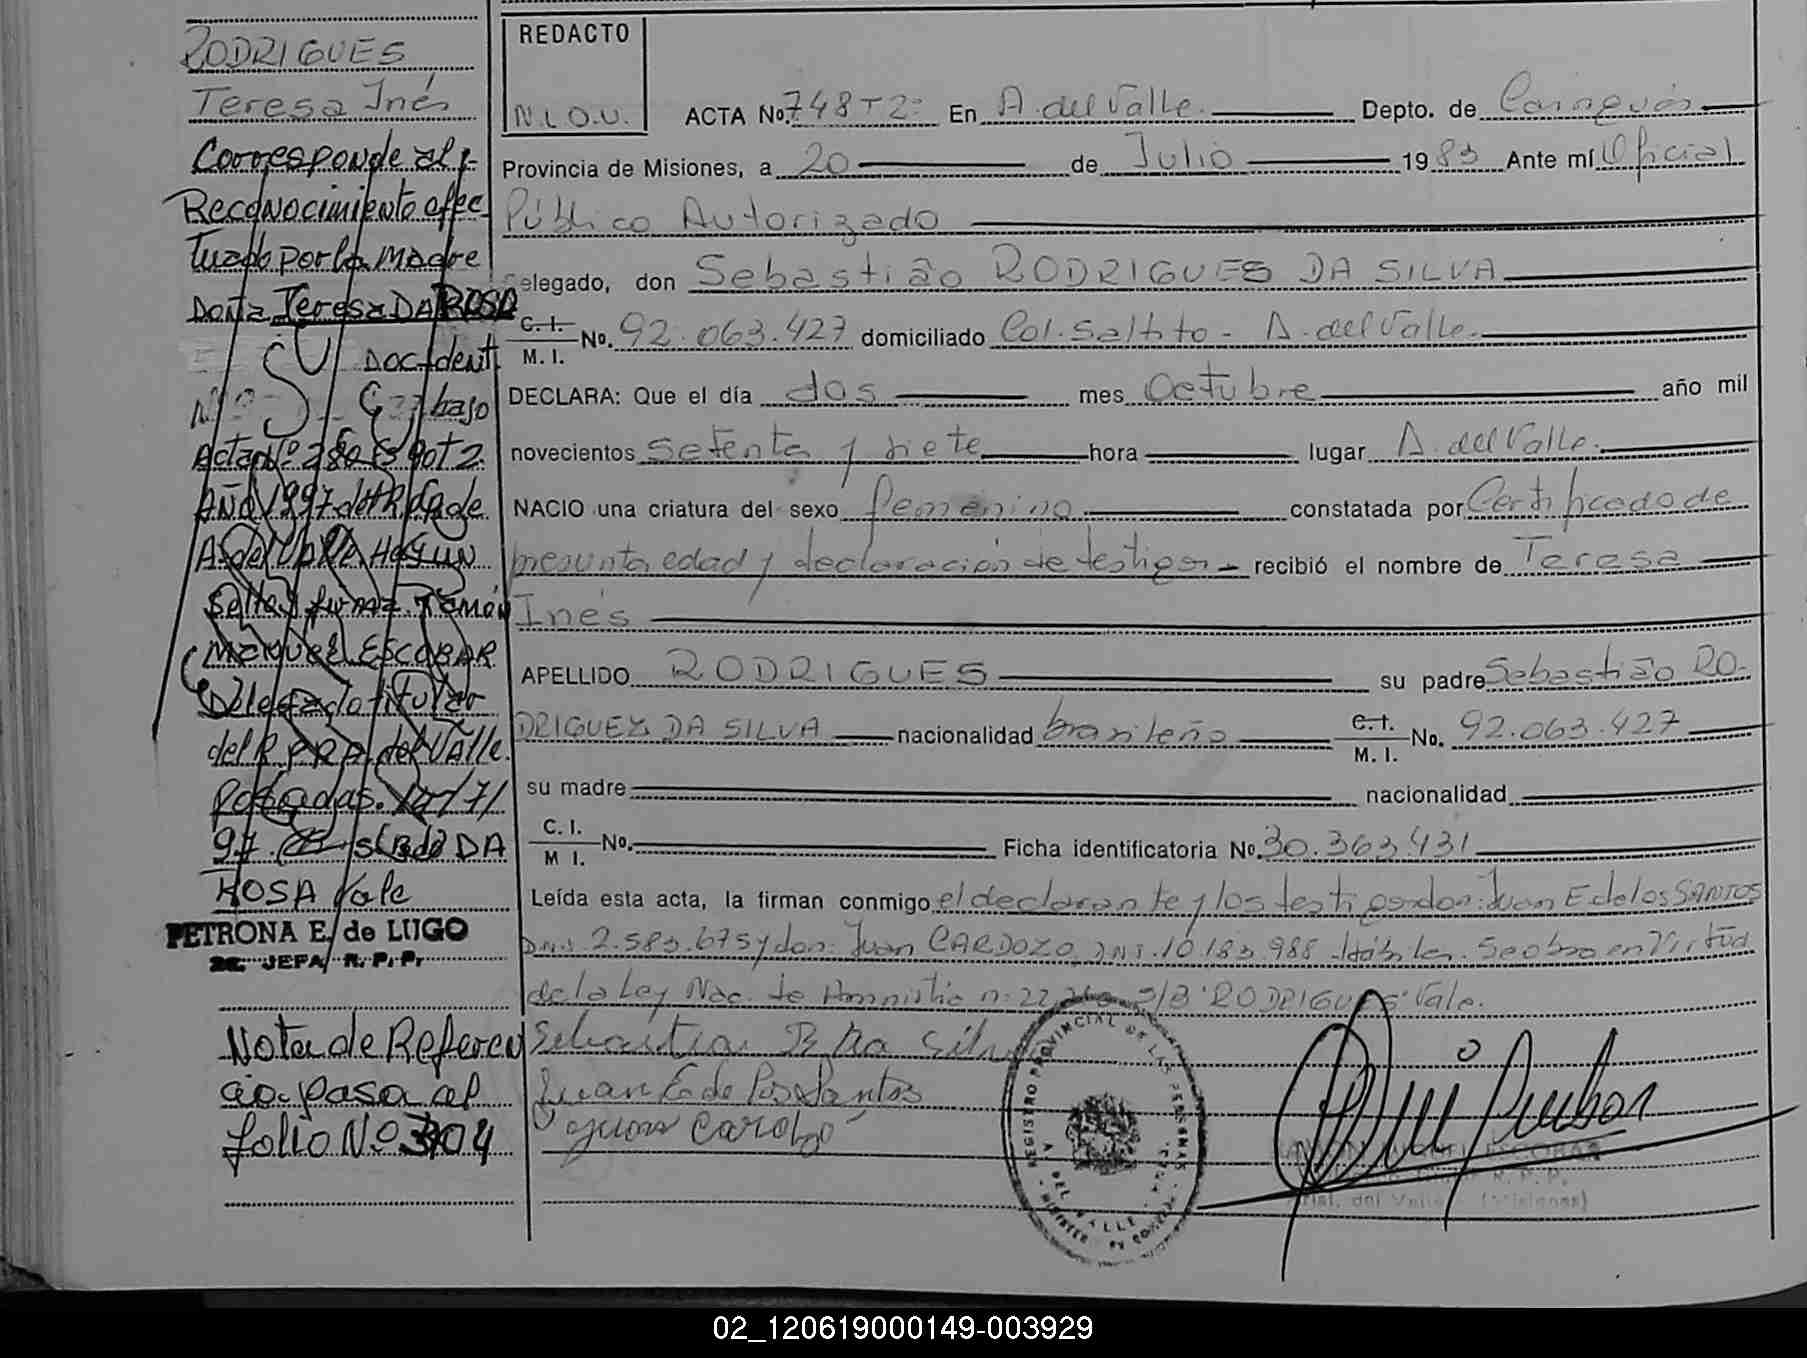 RODRIGUES
Teresa Inés
Corresponde al
Reconocimiento efec
tuado por la madre
Doña Teresa DA ROSA
Doc. Ident.
Nº bajo
Acta Nº
Año 1997 del R.P. de
A. del Valle. Hay un
Sello y firma. Ramón
Manuel ESCOBAR
Delegado titular
del R.P.P. A. del Valle.
Posadas.
97. DA
ROSA Vale
PETRONA E. de LUGO
2a. JEFA R. P. P.
Nota de Referen
cia pasa al
folio No. 304
REDACTO
N.L.O.U.
ACTA No. 748 T2: En A. del Valle. Depto. de Cainguás
Provincia de Misiones, a 20 de Julio 1983 Ante mí Oficial
Público Autorizado
elegado, don Sebastião RODRIGUES DA SILVA
C. I. M. I. No. 92.063.427 domiciliado Col. Saltito - A. del Valle.
DECLARA: Que el día dos mes Octubre año mil
novecientos setenta y siete hora lugar A. del Valle.
NACIO una criatura del sexo femenino constatada por Certificado de
presunta edad y declaración de testigos - recibió el nombre de Teresa
Inés
APELLIDO RODRIGUES su padre Sebastião RO-
DRIGUES DA SILVA nacionalidad brasileño C. I. M. I. No. 92.063.427
su madre nacionalidad
C. I. M I. No. Ficha identificatoria No. 30.363.431
Leída esta acta, la firman conmigo el declarante y los testigos don: Juan E de los SANTOS
D.N.I. 2.583.675 y don: Juan CARDOZO, D.N.I. 10.183.988 Hábiles. Se obra en Virtud
de la Ley Nac. de Amnistia n: S/B "RODRIGUES" Vale.
Sebastião R da Silva
Juan E de los Santos
Juan Cardozo
REGISTRO PROVINCIAL DE LAS PERSONAS
A. DEL VALLE
ESCOBAR
R. P. P.
del Valle (Misiones)
02_120619000149-003929